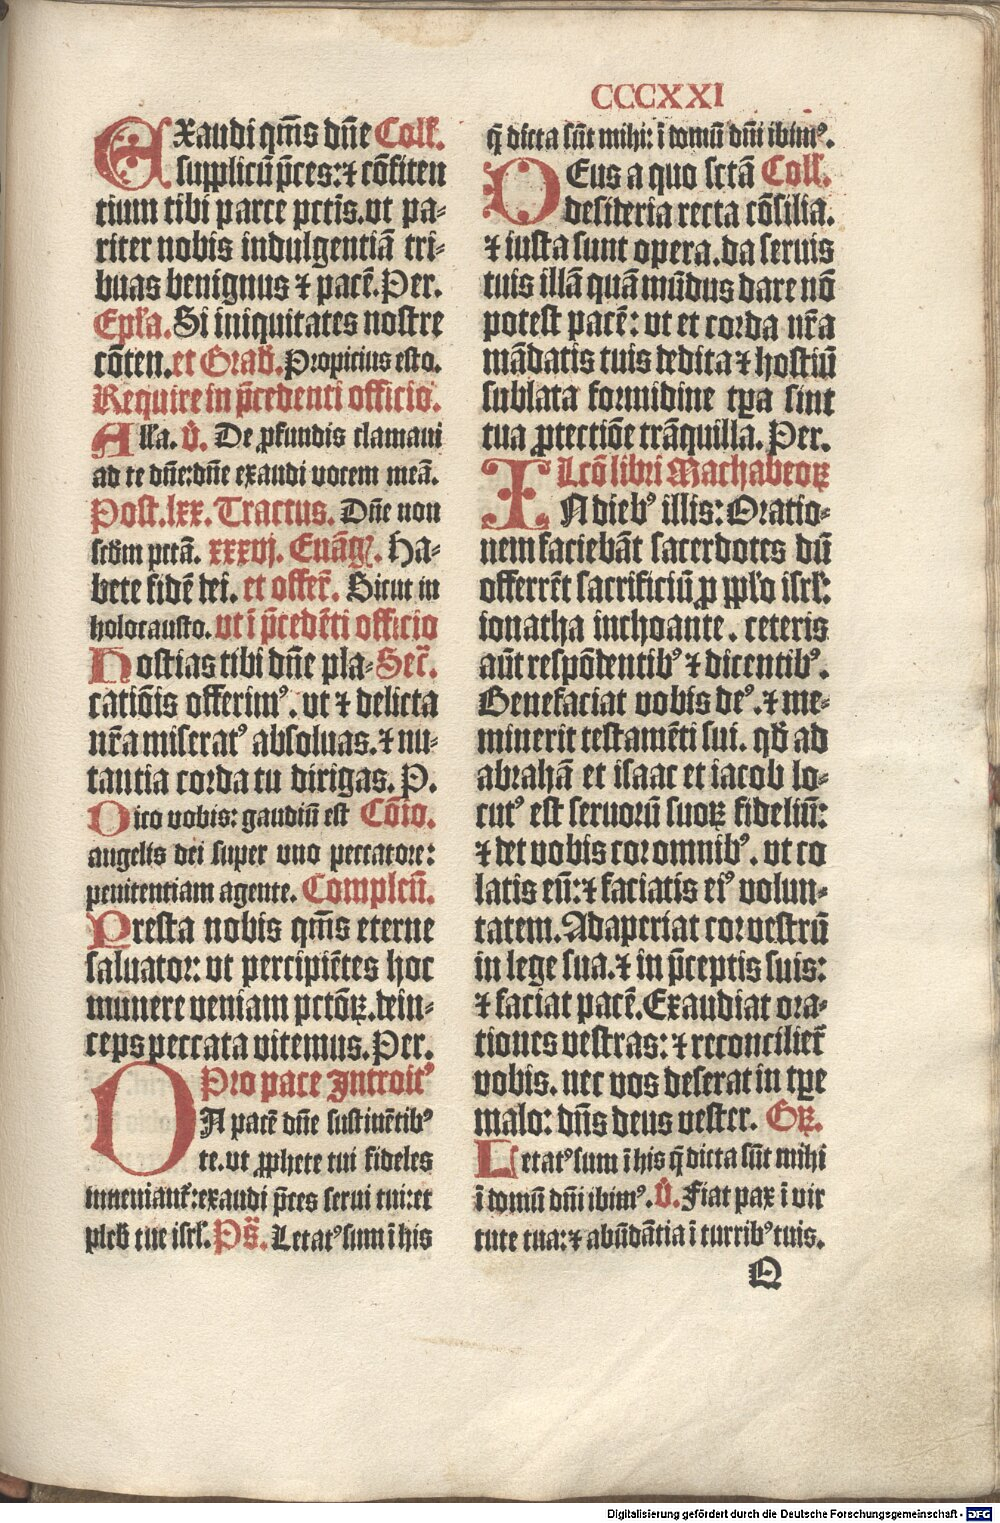 CCCXXI
Exaudi qm̄s dn̄e Coll'.
supplicū p̄ces: ⁊ cōfiten
tium tibi parce pctīs. vt pa⸗
riter nobis indulgentiā tri⸗
buas benignus ⁊ pacē. Per.
Epl'a. Si iniquitates nostre
cōten. et Grad'. Propicius esto.
Require in p̄cedenti officio.
All'a. V̄. De ꝓfundis clamaui
ad te dn̄e: dn̄e exaudi vocem meā.
Post. lxx. Tractus. Dn̄e non
scd̄m pctā. xxxvj. Euāgꝭ. Ha⸗
bete fidē dei. et offer̄. Sicut in
holocausto. vt ī p̄cedēti officio
Hostias tibi dn̄e pla⸗ Secr̄.
catiōis offerimꝰ. vt ⁊ delicta
nr̄a miseratꝰ absoluas. ⁊ nu⸗
tantia corda tu dirigas. P.
Dico vobis: gaudiū est Cōio.
angelis dei super vno peccatore:
penitentiam agente. Complen̄.
Presta nobis qm̄s eterne
saluator: vt percipiētes hoc
munere veniam pctōꝝ. dein⸗
ceps peccata vitemus. Per.
Pro pace Introitꝰ
DA pacē dn̄e sustinētibꝰ
te. vt ꝓphete tui fideles
inueniant̄: exaudi p̄ces serui tui: et
pleb' tue isrl'. Ps̄. Letatꝰ sum ī his
q̄ dicta sūt mihi: ī domū dn̄i ibimꝰ.
DEus a quo sctā Coll'.
desideria recta cōsilia.
⁊ iusta sunt opera. da seruis
tuis illā quā mūdus dare nō
potest pacē: vt et corda nr̄a
mādatis tuis dedita ⁊ hostiū
sublata formidine tꝑa sint
tua ꝓtectiōe trāquilla. Per.
Lcō libri Machabeoꝝ
INdiebꝰ illis: Oratio⸗
nem faciebāt sacerdotes dū
offerrēt sacrificiū ꝓ ppl'o isrl':
ionatha inchoante. ceteris
aūt respōdentibꝰ ⁊ dicentibꝰ.
Benefaciat vobis deꝰ. ⁊ me⸗
minerit testamēti sui. qd' ad
abrahā et isaac et iacob lo⸗
cutꝰ est seruorū suoꝝ fideliū:
⁊ det vobis cor omnibꝰ. vt co
latis eū: ⁊ faciatis eiꝰ volun⸗
tatem. Adaperiat cor vestrū
in lege sua. ⁊ in p̄ceptis suis:
⁊ faciat pacē. Exaudiat ora⸗
tiones vestras: ⁊ reconciliet̄
vobis. nec vos deserat in tꝑe
malo: dn̄s deus vester. Gꝝ.
Letatꝰ sum ī his q̄ dicta sūt mihi
ī domū dn̄i ibimꝰ. V̄. Fiat pax ī vir
tute tua: ⁊ abūdātia ī turribꝰ tuis.
Q
Digitalisierung gefördert durch die Deutsche Forschungsgemeinschaft - DFG